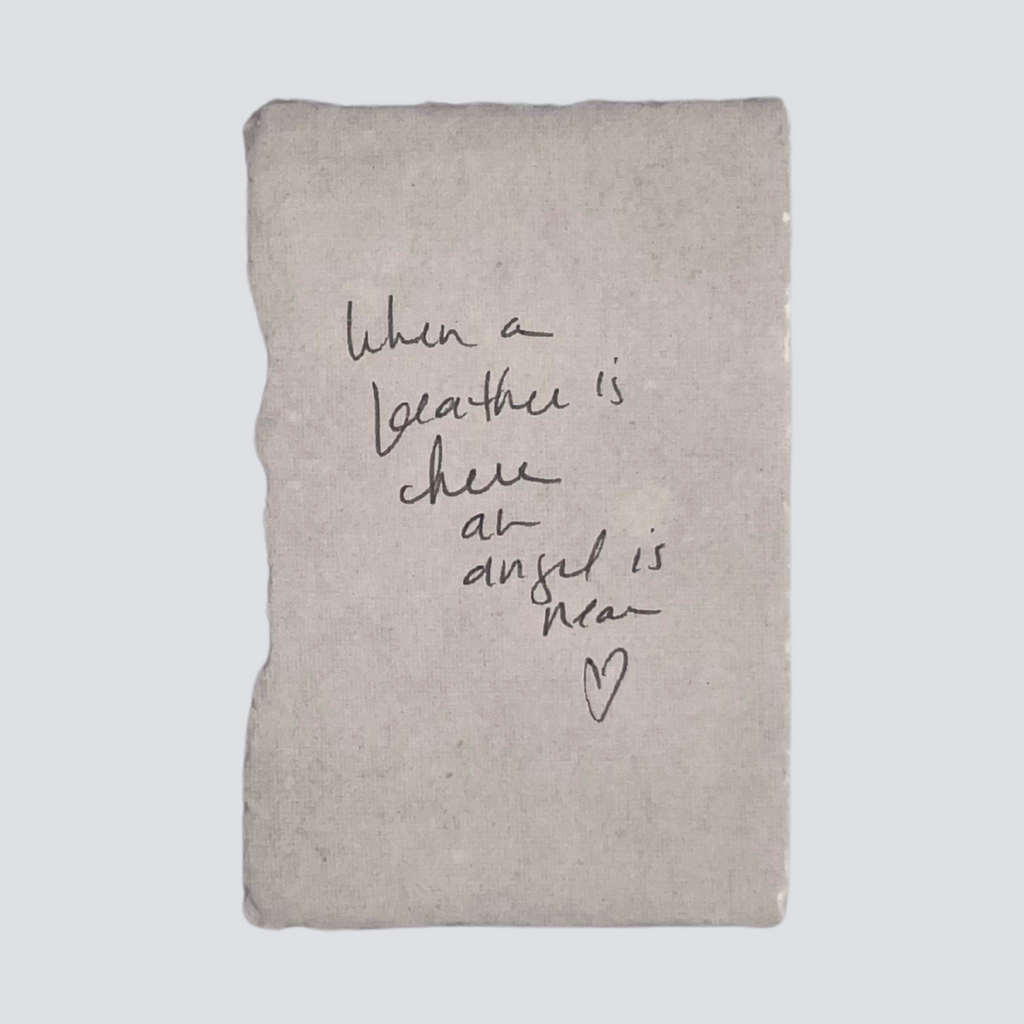 When a
feather is
here
an
angel is
near
♡